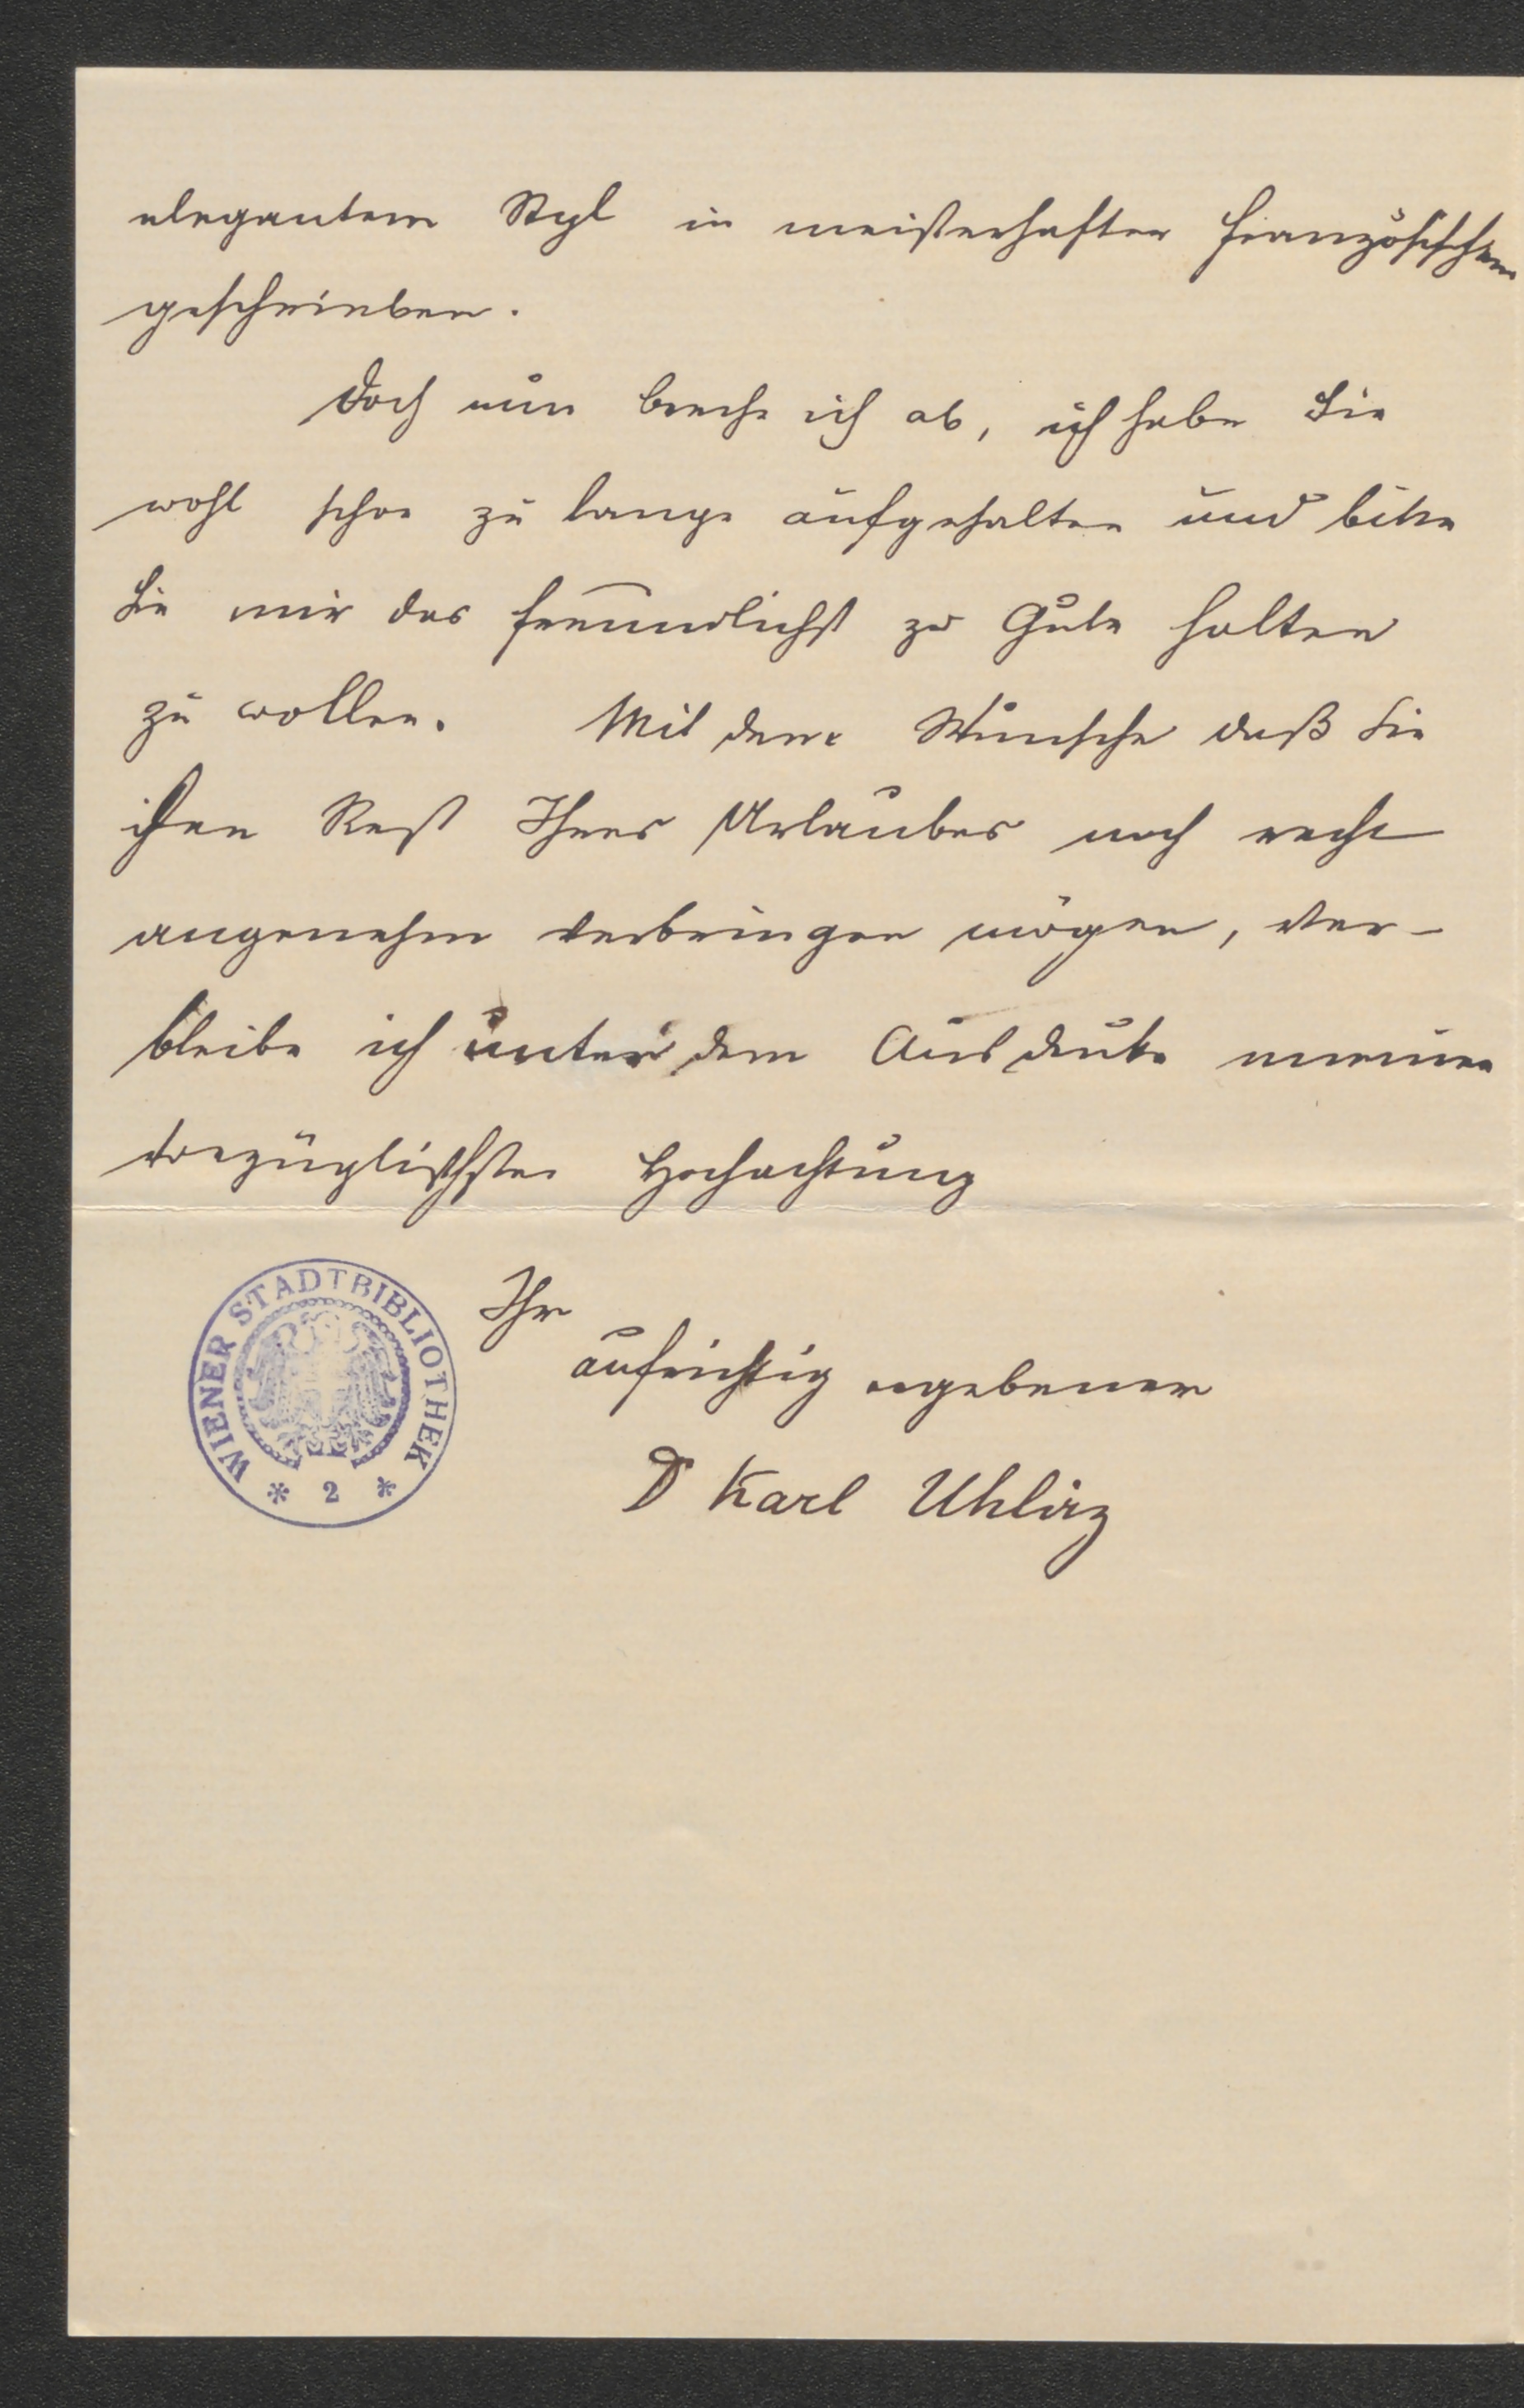 elegantem Styl in meisterhaftem französischen
geschrieben.
Doch nun breche ich ab, ich habe Sie
wohl schon zu lange aufgehalten und bitte
Sie mir das freundlichst zu Gute halten
zu wollen. Mit dem Wunsche daß Sie
Rest Ihres Urlaubes noch recht
angenehm verbringen mögen, ver-
bleibe ich unter dem Ausdrucke meiner
vorzüglichsten Hochachtung
Ihr
aufrichtig ergebener
Dr Karl Uhlirz
WIENER STADTBIBLIOTHEK
* 2 *